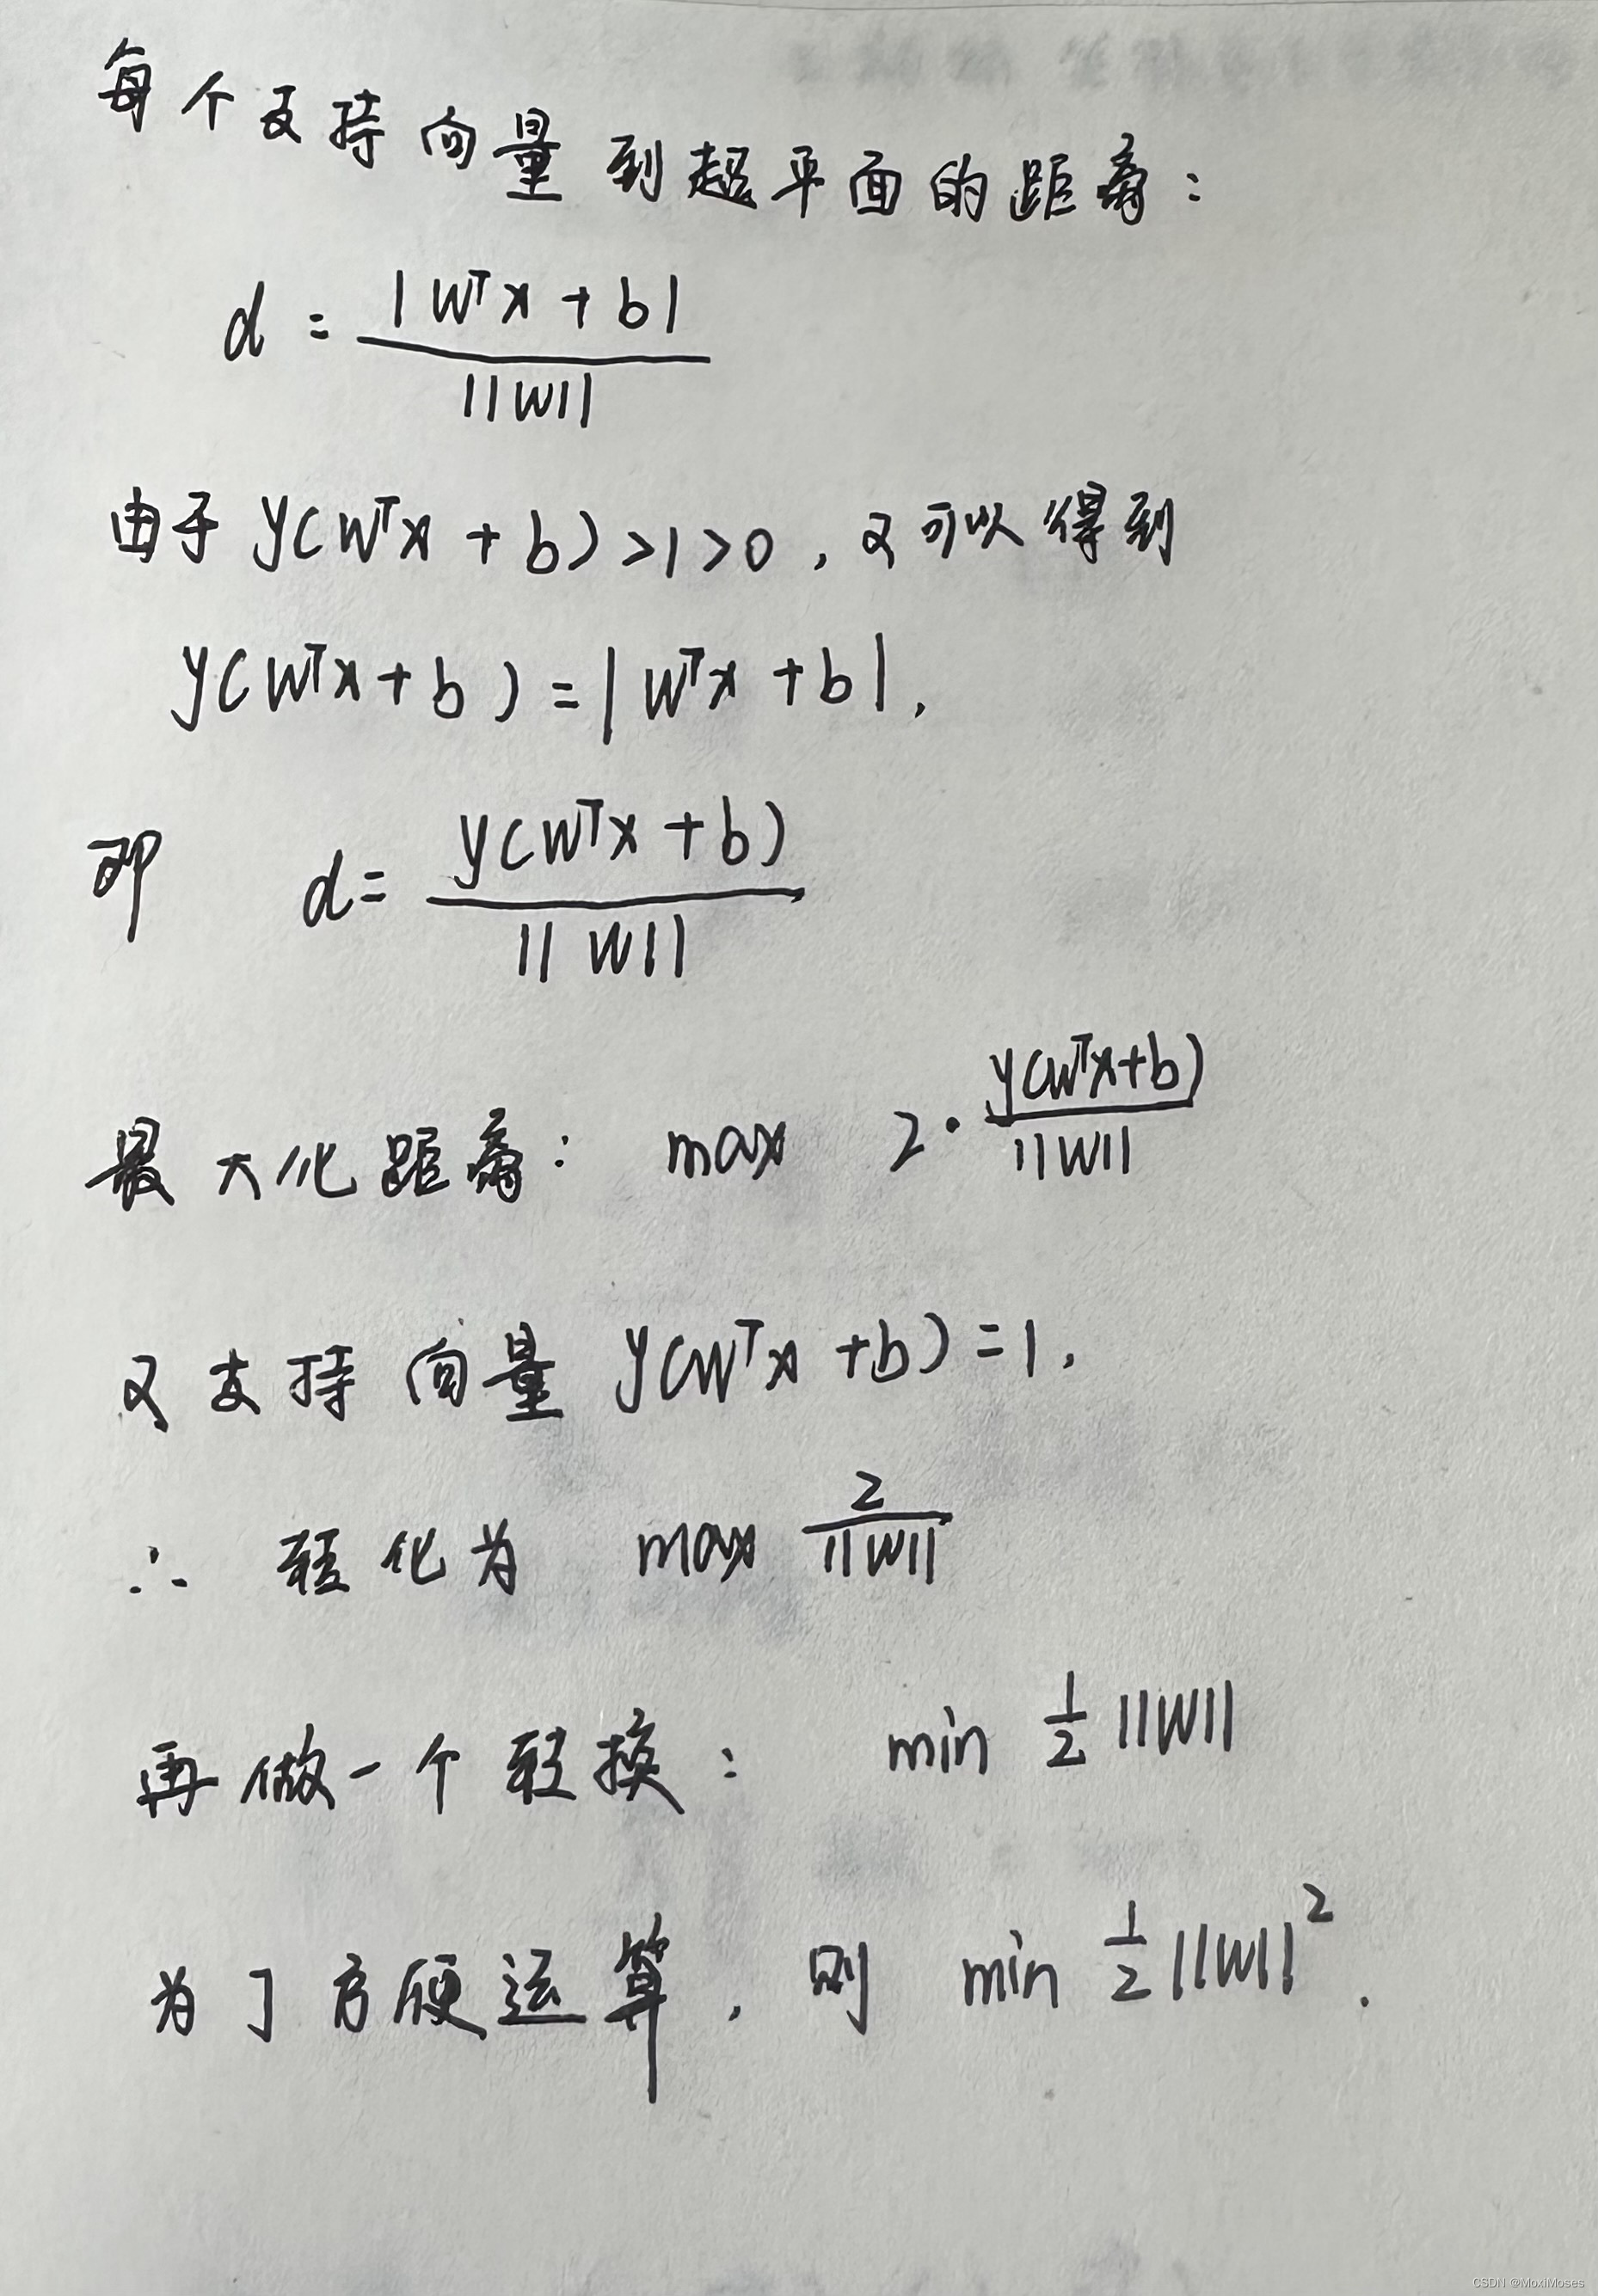 每个支持向量到超平面的距离:
d = |Wᵀx + b| / ||W||
由于 y(Wᵀx + b) >1>0, 又可以得到
y(Wᵀx + b) = |Wᵀx + b|,
即 d = y(Wᵀx + b) / ||W||
最大化距离: max 2· y(Wᵀx+b) / ||W||
又支持向量 y(Wᵀx + b) = 1,
∴ 转化为 max 2 / ||W||
再做一个转换: min 1/2 ||W||
为了方便运算, 则 min 1/2 ||W||².
CSDN @MoxiMoses